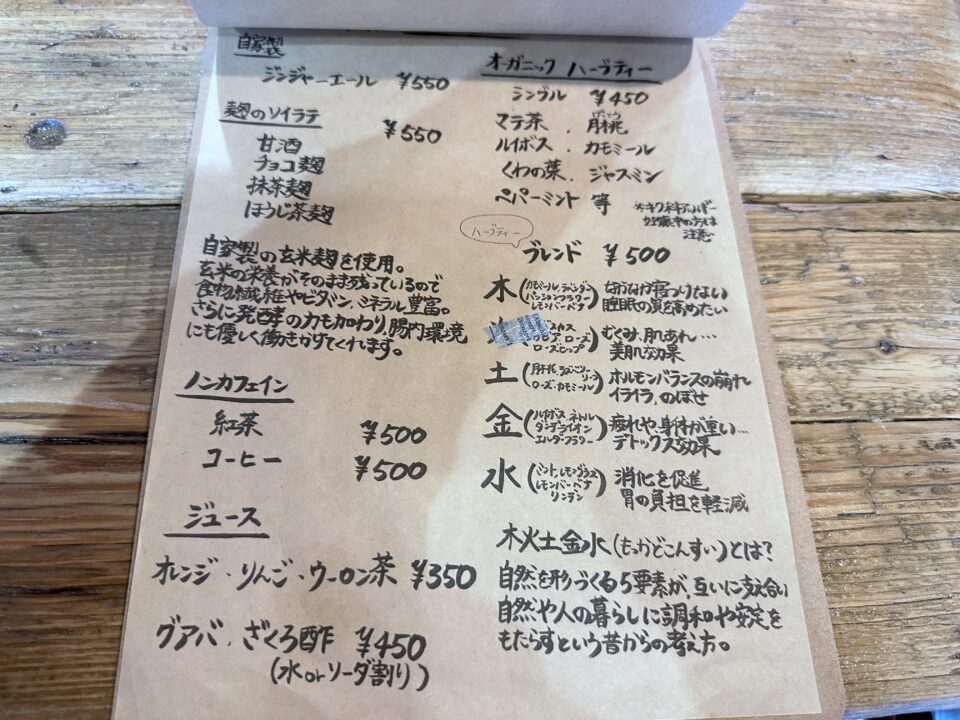 自家製
ジンジャーエール ¥550
麹のソイラテ
¥550
甘酒
チョコ麹
抹茶麹
ほうじ茶麹
自家製の玄米麹を使用。
玄米の栄養がそのまま残っているので
食物繊維やビタミン、ミネラル豊富。
さらに発酵の力も加わり、腸内環境
にも優しく働きかけてくれます。
ノンカフェイン
紅茶 ¥500
コーヒー ¥500
ジュース
オレンジ・りんご・ウーロン茶 ¥350
グアバ・ざくろ酢 ¥450
(水orソーダ割り)
オーガニック ハーブティー
シングル ¥450
マテ茶 . 月桃
ルイボス . カモミール
くわの葉 . ジャスミン
ペパーミント 等
※キク科アレルギー
妊娠中の方は
注意
ハーブティー
ブレンド ¥500
木(カモミール、ラベンダー
パッションフラワー
レモンバーベナ)
なかなか寝つけない
睡眠の質を高めたい
ローズ
ローズヒップ)
むくみ、肌あれ…
美肌効果
土(月桃、ラズベリーリーフ
ローズ、カモミール)
ホルモンバランスの崩れ
イライラ、のぼせ
金(ルイボス ネトル
ダンデライオン
エルダーフラワー)
疲れや、身体が重い…
デトックス効果
水(ミント、レモングラス
レモンバーベナ
リンデン)
消化を促進
胃の負担を軽減
木火土金水(もっかどこんすい)とは?
自然を形づくる5要素が、互いに支え合い
自然や人の暮らしに調和や安定を
もたらすという昔からの考え方。